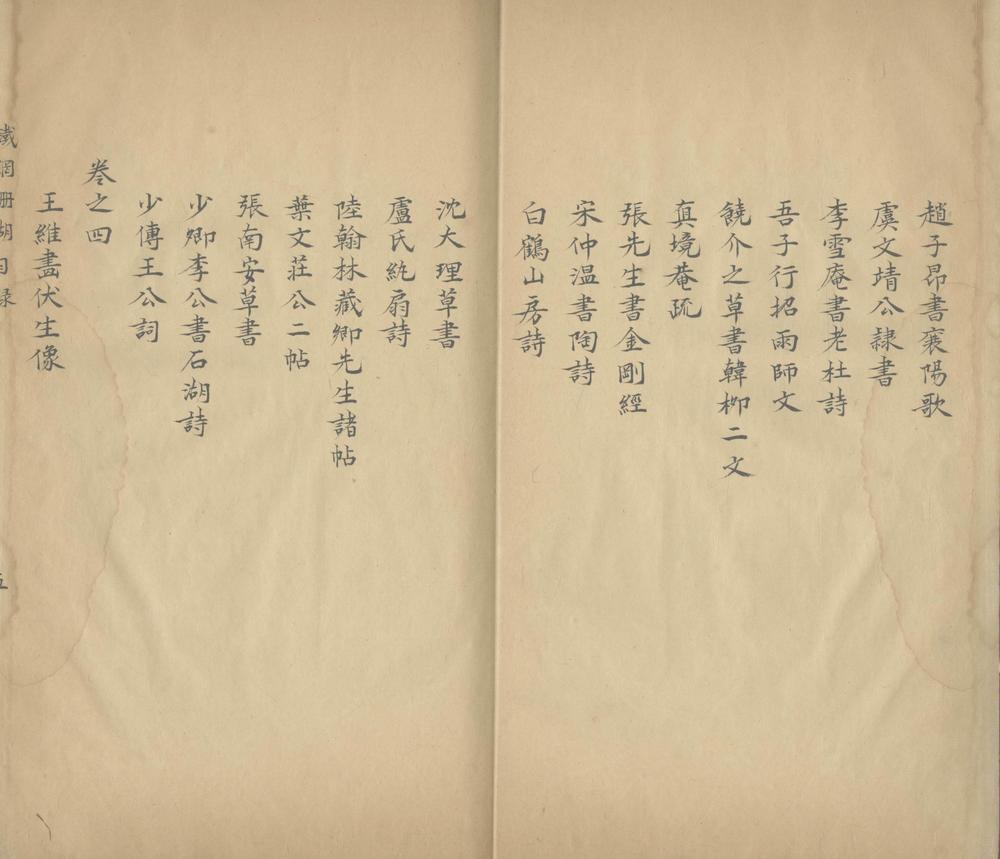 趙子昂書襄陽歌
虞文靖公隷書
李雪庵書老杜詩
吾子行招雨師文
饒介之草書韓栁二文
真境菴疏
張先生書金剛經
宋仲温書陶詩
白鶴山房詩
沈大理草書
盧氏紈扇詩
陸翰林藏卿先生諸帖
葉文莊公二帖
張南安草書
少卿李公書石湖詩
少傅王公詞
卷之四
王維畫伏生像
鐵網珊瑚目録
五